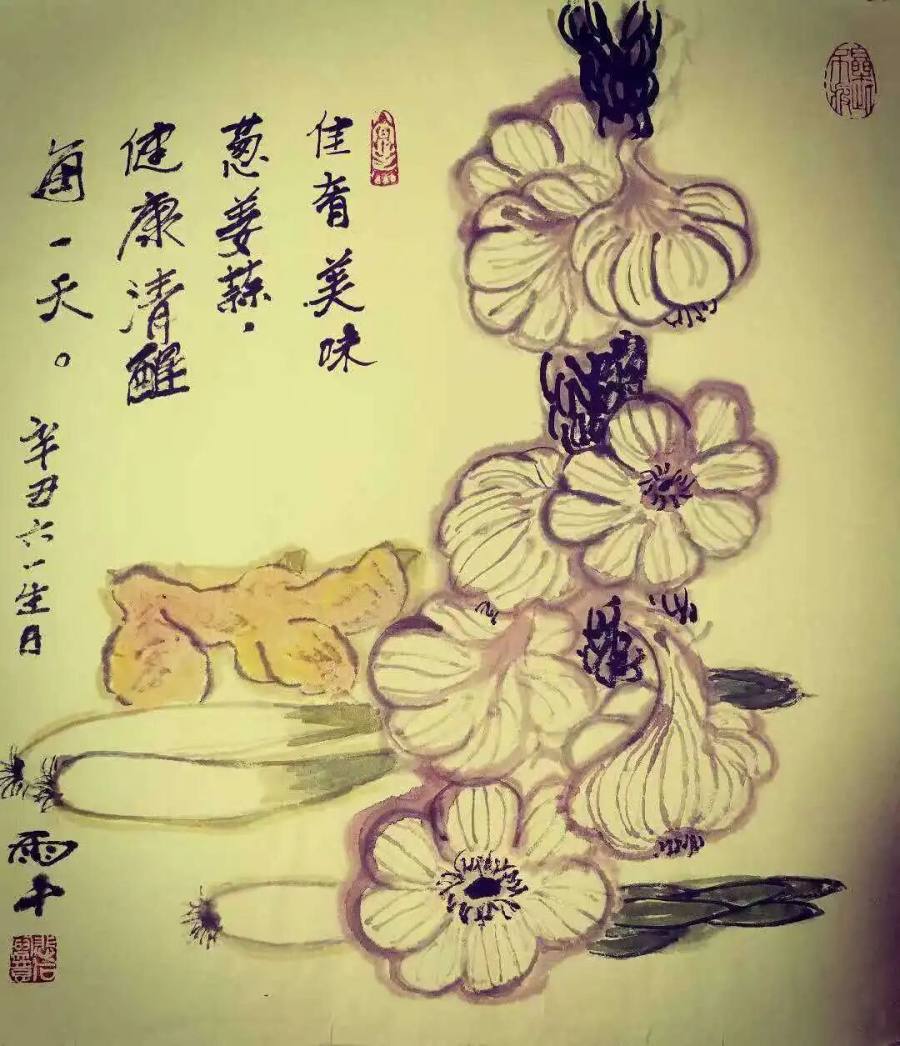 佳肴美味
葱姜蒜.
健康清醒
每一天。
辛丑六一生日
雨千